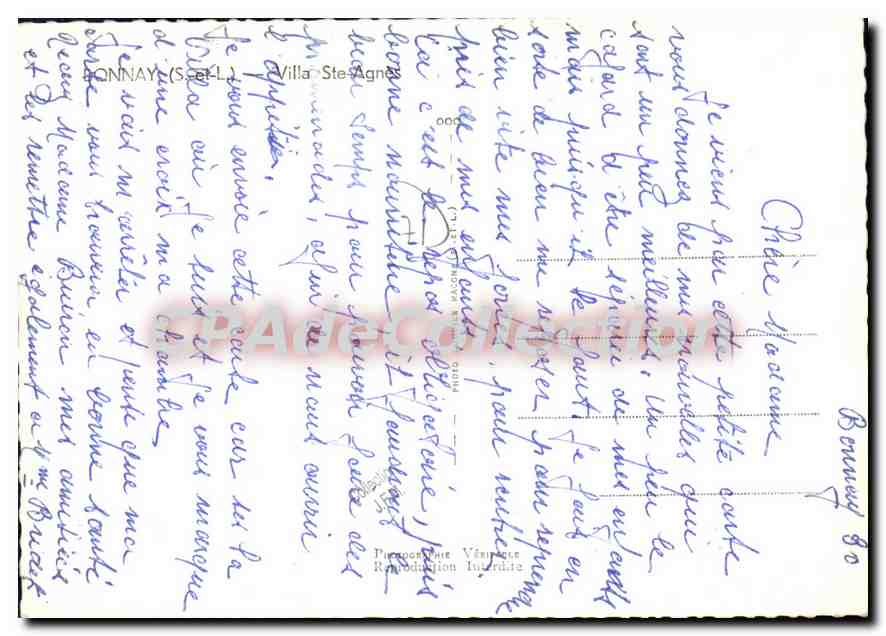 Bonnay 30
Chère Madame
Je viens par cette petite carte
vous donner de mes nouvelles qui
sont un peu meilleures, un peu le
cafard d'être séparée de mes enfants
mais puisqu'il le faut. Je fais en
sorte de bien me reposer pour reprendre
bien vite mes forces, pour rentrer
près de mes enfants
Là c'est le repos obligatoire, puis
bonne nourriture, il faudrait
beau temps pour pouvoir faire des
promenades, afin de nous ouvrir
l'appétit.
Je vous envoie cette carte car est la
Villa où je suis et je vous marque
d'une croix ma chambre
Je vais m'arrêter et pense que ma
carte vous trouvera en bonne santé
Recevez Madame mes amitiés
et les remettre également à Mme
BONNAY (S.-et-L.) — Villa Ste-Agnès
PHOTOGRAPHIE VÉRITABLE
Reproduction Interdite
Collection
CPAdeCollection